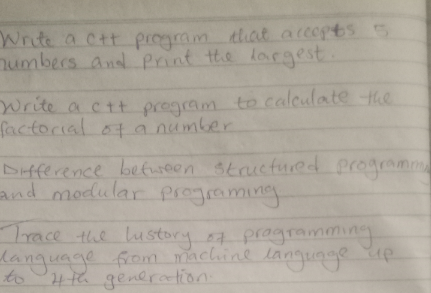 Write a c++ program that accepts 5
numbers and print the largest.
Write a c++ program to calculate the
factorial of a number
Difference between structured programming
and modular programing
Trace the history of programming
language from machine language up
to 4th generation.